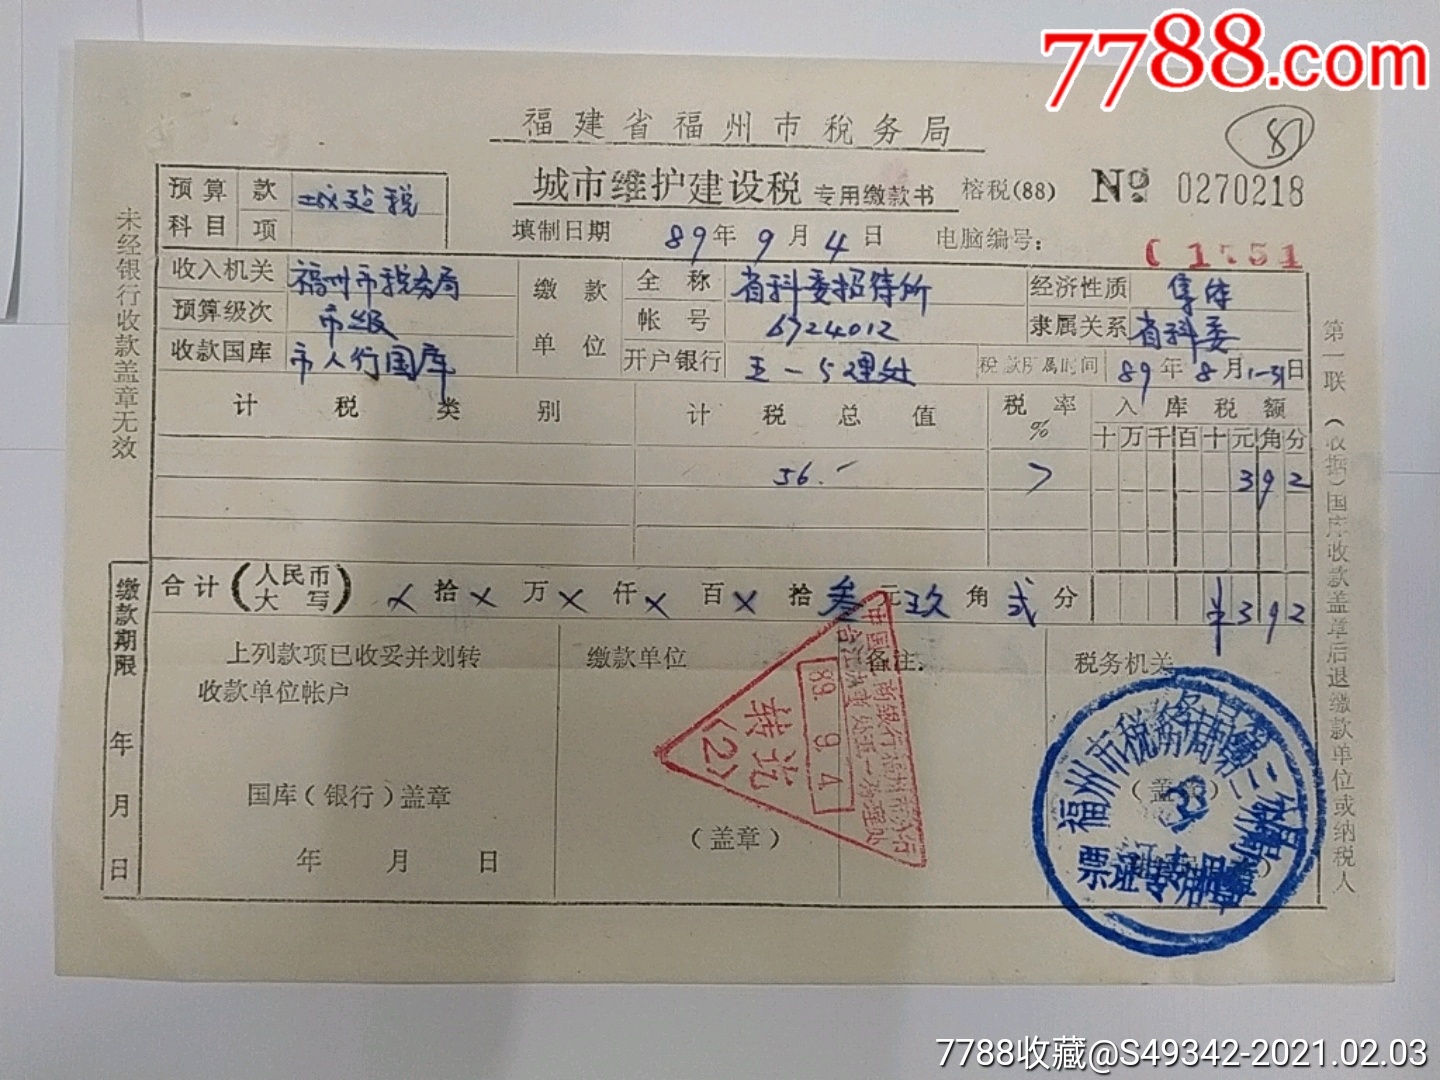 7788.com
福建省福州市税务局
81
城市维护建设税 专用缴款书 榕税(88) № 0270218
预算科目 款 项 城建税
填制日期 89年9月4日 电脑编号:
收入机关 福州市税务局
预算级次 市级
收款国库 市人行国库
缴款单位
全称 省科委招待所
帐号 6724012
开户银行 五一分理处
经济性质 集体
隶属关系 省科委
税款所属时间 89年8月1-31日
计税类别 计税总值 税率% 入库税额
十万千百十元角分
56.- 7 3 9 2
合计(人民币大写) ×拾×万×仟×百×拾叁元玖角贰分 ¥392
上列款项已收妥并划转
收款单位帐户
国库(银行)盖章
年 月 日
缴款单位
(盖章)
备注:
税务机关
(盖章)
89. 9. 4
转讫
(2)
福州市税务局第三分局
3
票证专用章
未经银行收款盖章无效
缴款期限 年 月 日
第一联(收据)国库收款盖章后退缴款单位或纳税人
7788收藏@S49342-2021.02.03